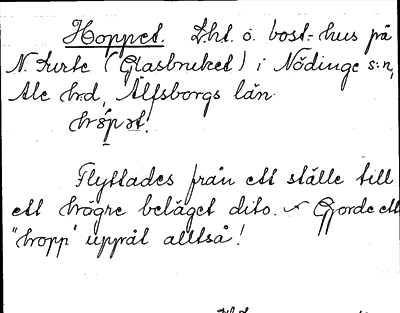 Hoppet. Lht. o. bost.-hus på
N. Surte (Glasbruket) i Nödinge s:n,
Ale hrd, Älfsborgs län.
hɔ̀pət.
Flyttades från ett ställe till
ett högre beläget dito. Gjorde ett
"hopp" uppåt alltså!